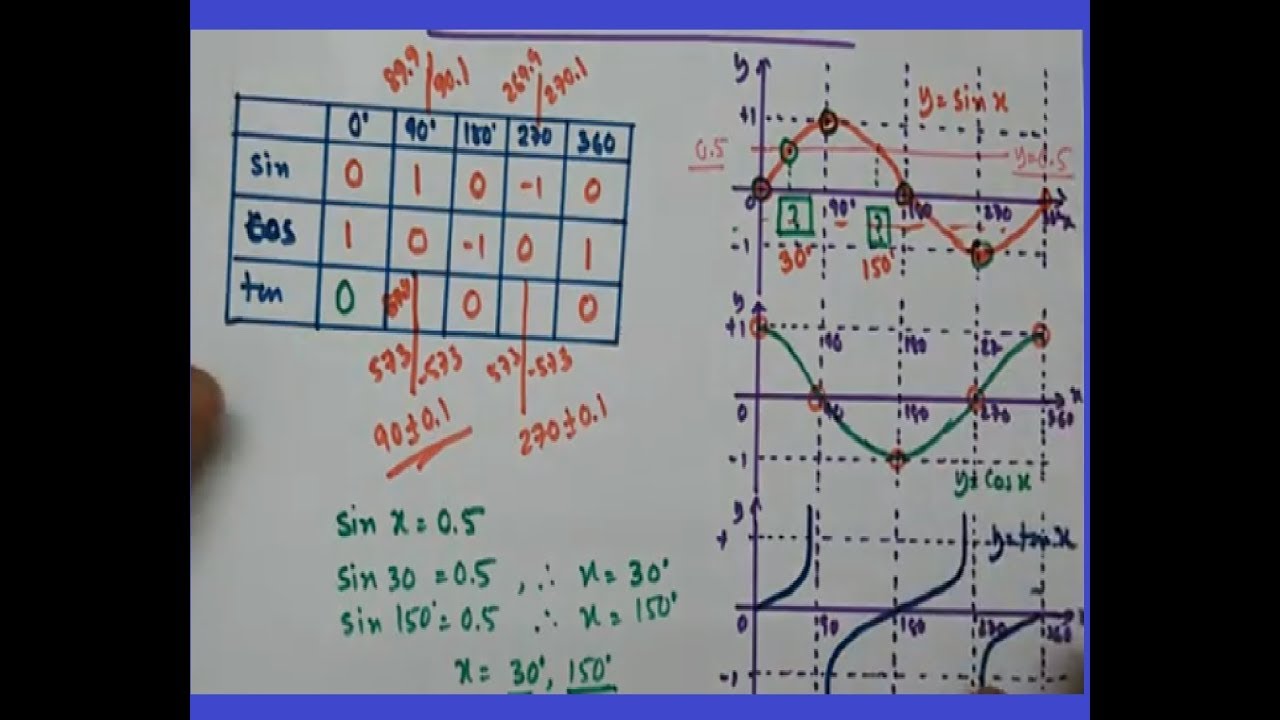 89.9 / 90.1 269.9 / 270.1
0° 90° 180° 270 360
sin 0 1 0 -1 0
cos 1 0 -1 0 1
tan 0 0 0
573 / -573 573 / -573
90±0.1 270±0.1
sin x = 0.5
sin 30 = 0.5 , ∴ x = 30°
sin 150° = 0.5 ∴ x = 150°
x = 30°, 150°
y
y = sin x
+1
0.5 y=0.5
0 ? 90° ? 180 270 x
-1 30° 150°
y
+1
90 180 27
0 90 180 270 360 x
-1
y = cos x
y
+ y = tan x
0 90 180 270 360
-1